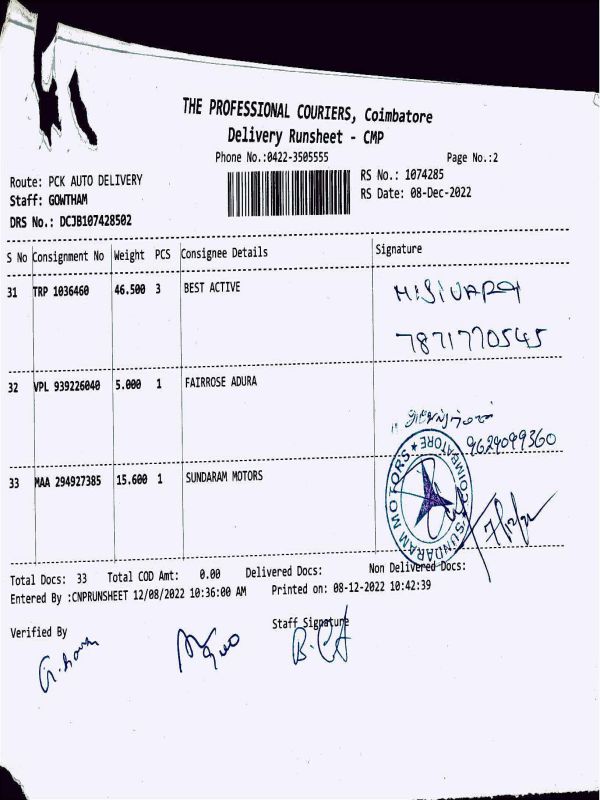 THE PROFESSIONAL COURIERS, Coimbatore
Delivery Runsheet - CMP
Phone No.:0422-3505555
Page No.:2
Route: PCK AUTO DELIVERY
RS No.: 1074285
Staff: GOWTHAM
RS Date: 08-Dec-2022
DRS No.: DCJB107428502
S No Consignment No Weight PCS Consignee Details Signature
31 TRP 1036460 46.500 3 BEST ACTIVE
7871770545
32 VPL 939226040 5.000 1 FAIRROSE ADURA
9629099360
33 MAA 294927385 15.600 1 SUNDARAM MOTORS
SUNDARAM MOTORS ★ COIMBATORE ★
Total Docs: 33 Total COD Amt: 0.00 Delivered Docs: Non Delivered Docs:
Entered By :CNPRUNSHEET 12/08/2022 10:36:00 AM Printed on: 08-12-2022 10:42:39
Verified By
Staff Signature